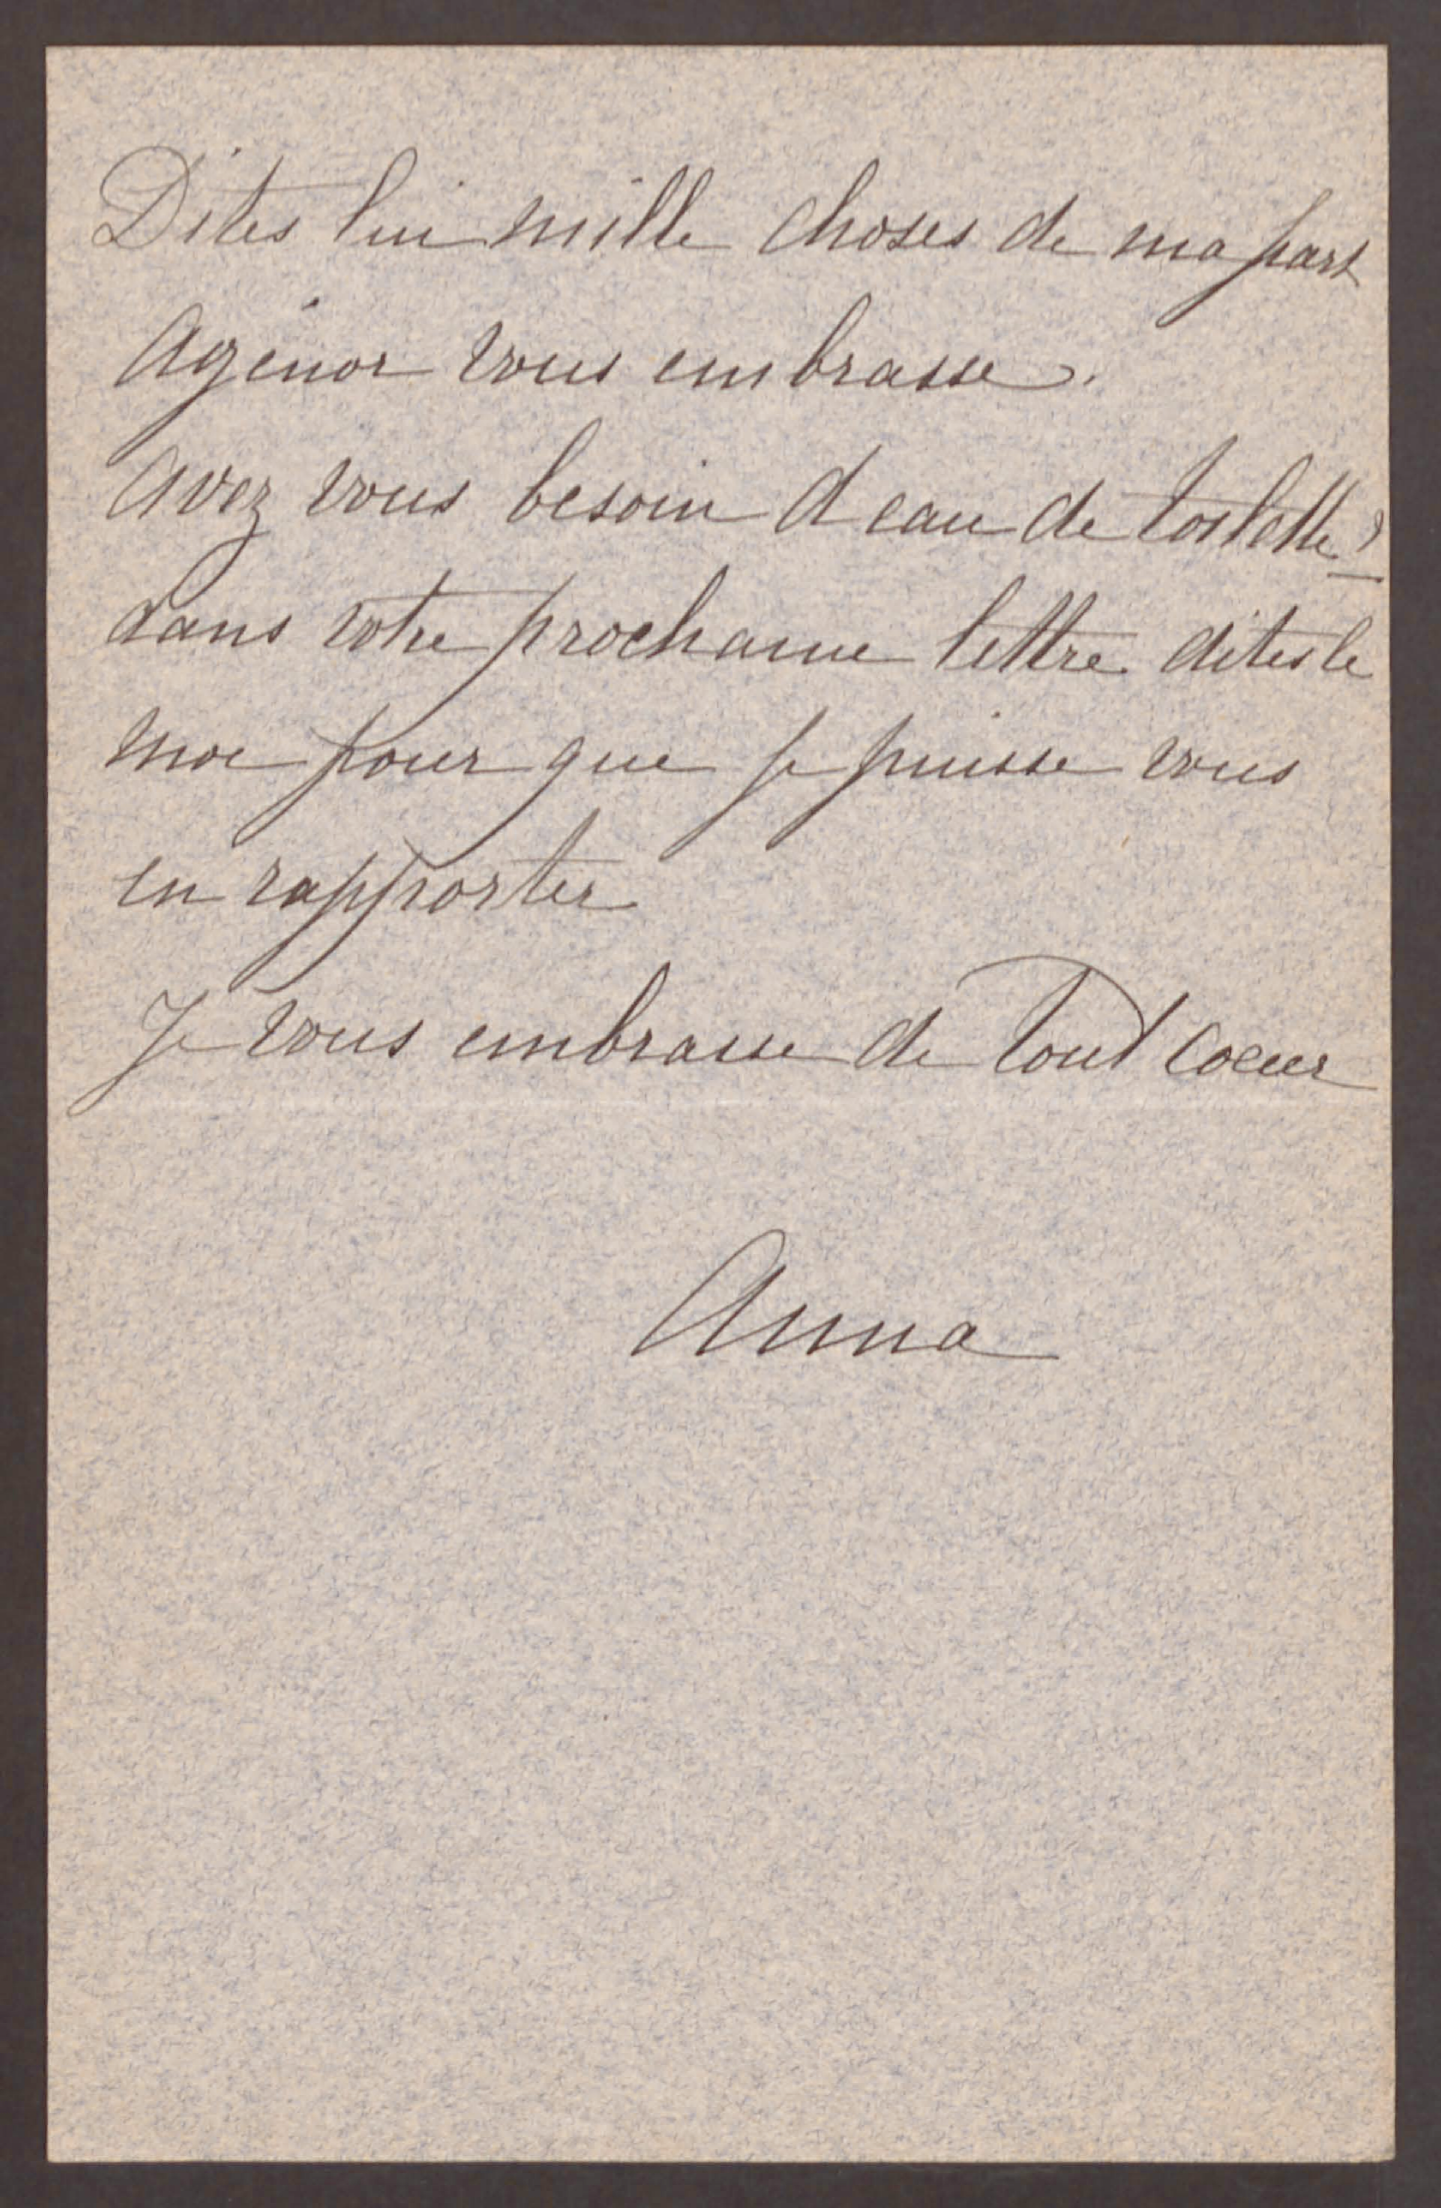 Dites lui mille choses de ma part
Agénor vous embrasse.
Avez vous besoin d eau de toilette?
dans votre prochaine lettre dites le
moi pour que je puisse vous
en rapporter
Je vous embrasse de tout coeur
Anna